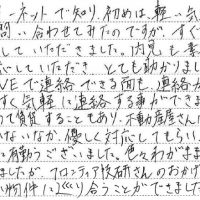 ーネットで知り、初めは、軽い気
問い合わせてみたのですが、すぐ
していただきました。内見も
応していただき とても助かりまし
VEで連絡できる面も、連絡
すく気軽に連絡する事ができま
めて賃貸することもあり、不動産屋さんに
いないなか、優しく対応してもらい、
に有難うございました。色々わがまま
ましたが、フロンティア技研さんのおかげ
い物件にめぐり合うことができました